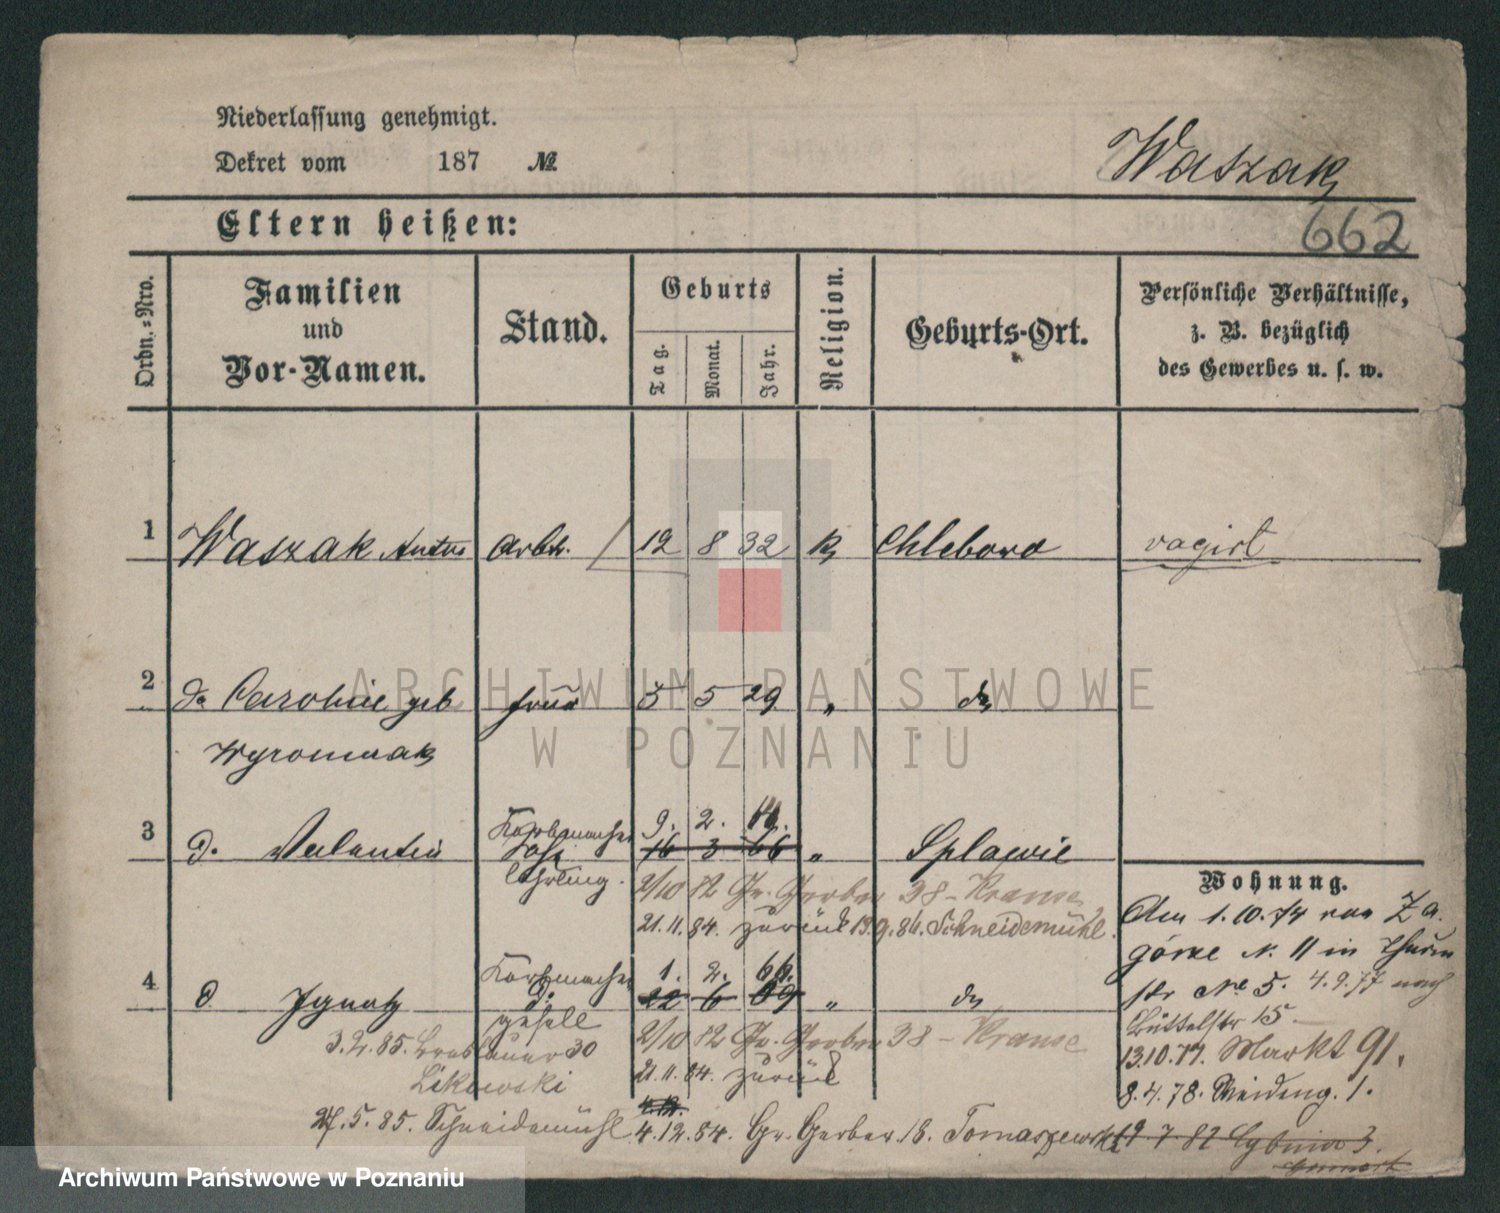 Niederlassung genehmigt.
Dekret vom 187 №
Waszak
Eltern heißen:
662
Ordn.-Nro.
Familien und Vor-Namen.
Stand.
Geburts
Tag.
Monat.
Jahr.
Religion.
Geburts-Ort.
Persönliche Verhältnisse,
z. B. bezüglich
des Gewerbes u. s. w.
1 Waszak Anton Arbtr. 12 8 32 k Chlebowo vagirt
2 do Caroline geb frau 5 5 29 " do
ARCHIWUM PAŃSTWOWE
W POZNANIU
3 d. Valentin Korbmacher 9. 2. " Splawie
16 3 66
lehrling.
2/10 82 Gr. Gerber 38 - Krause
21.11.84. zurück 13.9.86. Schneidemühl.
4 d Ignatz Korbmacher 1. 2. 66. " do
22 6 69
gesell
2/10 82 Gr. Gerber 38 - Krause
3.2.85. Breslauer 30
Likowski
21.11.84. zurück
4.12.
27.5.85. Schneidemühl. 4.12.84. Gr. Gerber 18. Tomaszewski
Wohnung.
Am 1.10.74 von Za-
górze N. 11 in Thurm
str No 5. 4.9.77 nach
Büttelstr 15
13.10.77. Markt 91.
8.4.78. Weideng. 1.
19 7 82 Cybina 3.
Archiwum Państwowe w Poznaniu